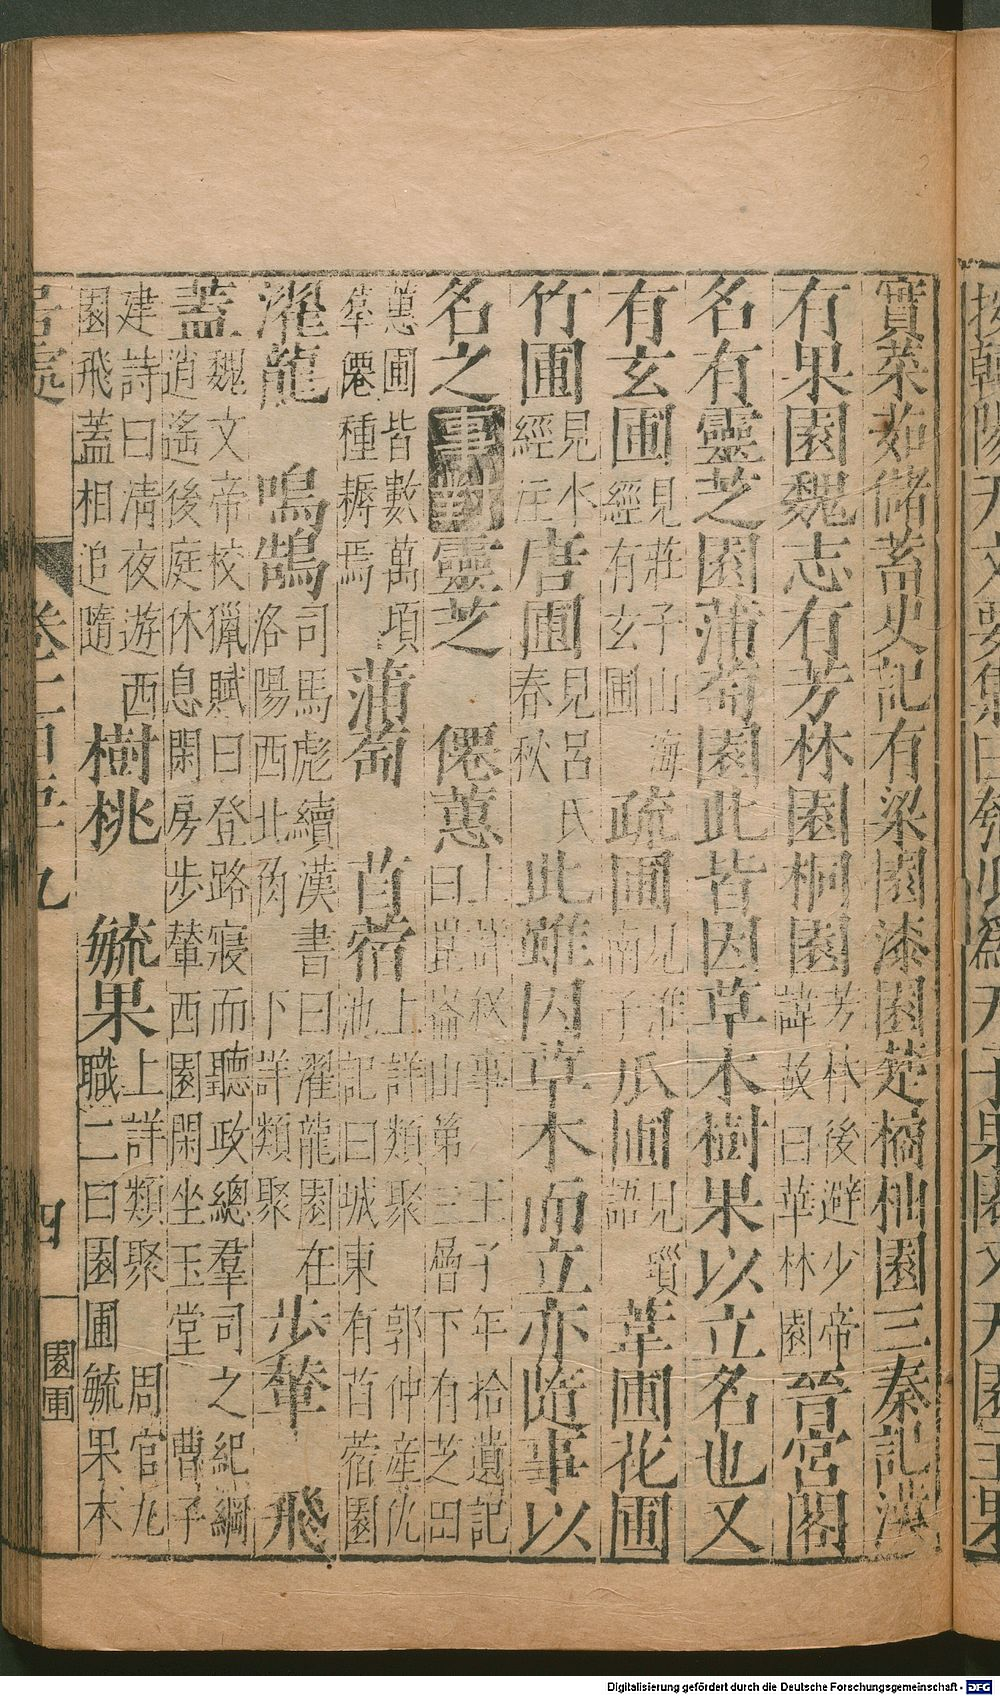 實菜茹儲蓄史記有梁園漆園楚橘柚園三秦記漢
有果園魏志有芳林園桐園芳林後避少帝諱故曰華林園晉宮閣
名有靈芝園蒲萄園此皆因草木樹果以立名也又
有玄圃見莊子山海經有玄圃疏圃見淮南子瓜圃見瑣語葦圃花圃
竹圃見水經注唐圃見呂氏春秋此雖因草木而立亦隨事以
名之事對靈芝 僊蕙上詳敘事 王子年拾遺記曰崑崙山第三層下有芝田
蕙圃皆數萬項羣僊種耨焉 蒲萄 苜蓿上詳類聚 郭仲產仇池記曰城東有苜蓿園
濯龍 鳴鵠司馬彪續漢書曰濯龍園在洛陽西北角 下詳類聚 步輦 飛
蓋魏文帝校獵賦曰登路寢而聽政總羣司之紀綱逍遙後庭休息閑房步輦西園閑坐玉堂 曹子
建詩曰清夜遊西園飛蓋相追隨 樹桃 毓果上詳類聚 周官九職二曰園圃毓草木
居處
卷二百五九
四
園圃
Digitalisierung gefördert durch die Deutsche Forschungsgemeinschaft - DFG